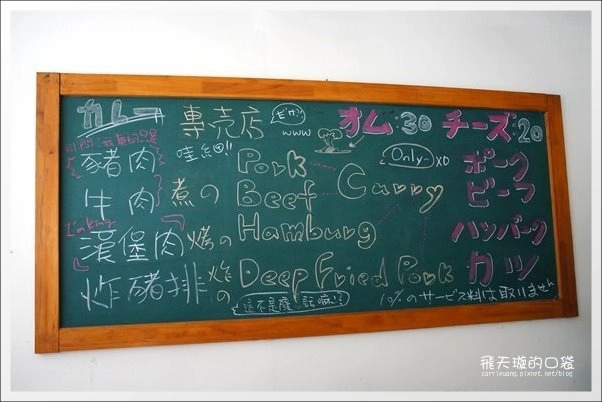 カレー 專売店 www オム:30 チーズ:20
豬肉 哇細!! Pork Only XD ポーク
牛肉 煮の Beef Curry ビーフ
I'm King
漢堡肉 烤の Hamburg ハッバーク
炸豬排 炸の Deep Fried Pork カツ
這不是廢話嘛!? 10%のサービス料は取りません
飛天璇的口袋
carrieuang.pixnet.net/blog